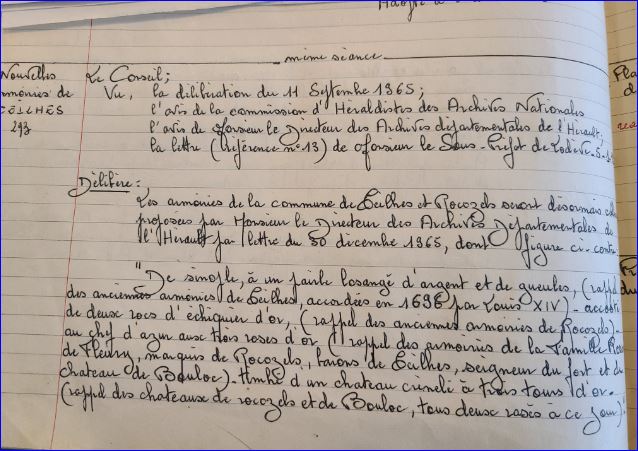 même séance
Nouvelles
armoiries de
CEILHES
293
Le Conseil;
Vu, la délibération du 11 Septembre 1965;
l'avis de la commission d'Héraldistes des Archives Nationales
l'avis de Monsieur le Directeur des Archives départementales de l'Hérault;
la lettre (référence n°13) de Monsieur le Sous-Préfet de Lodève
Délibère:
Les armoiries de la commune de Ceilhes et Rocozels seront désormais
proposées par Monsieur le Directeur des Archives Départementales de
l'Hérault par lettre du 30 décembre 1965, dont figure ci-contre
"De sinople, à un fairle losangé d'argent et de gueules, (rappel
des anciennes armoiries de Ceilhes, accordées en 1696 par Louis XIV) - accosté
de deux rocs d'échiquier d'or, (rappel des anciennes armoiries de Rocozels)-
au chef d'azur aux trois roses d'or (rappel des armoiries de la Famille
de Fleury, marquis de Rocozels, barons de Ceilhes, seigneur du fort et du
chateau de Bouloc)-timbré d'un chateau crénelé à trois tours d'or-
(rappel des chateaux de rocozels et de Bouloc, tous deux rasés à ce jour)."